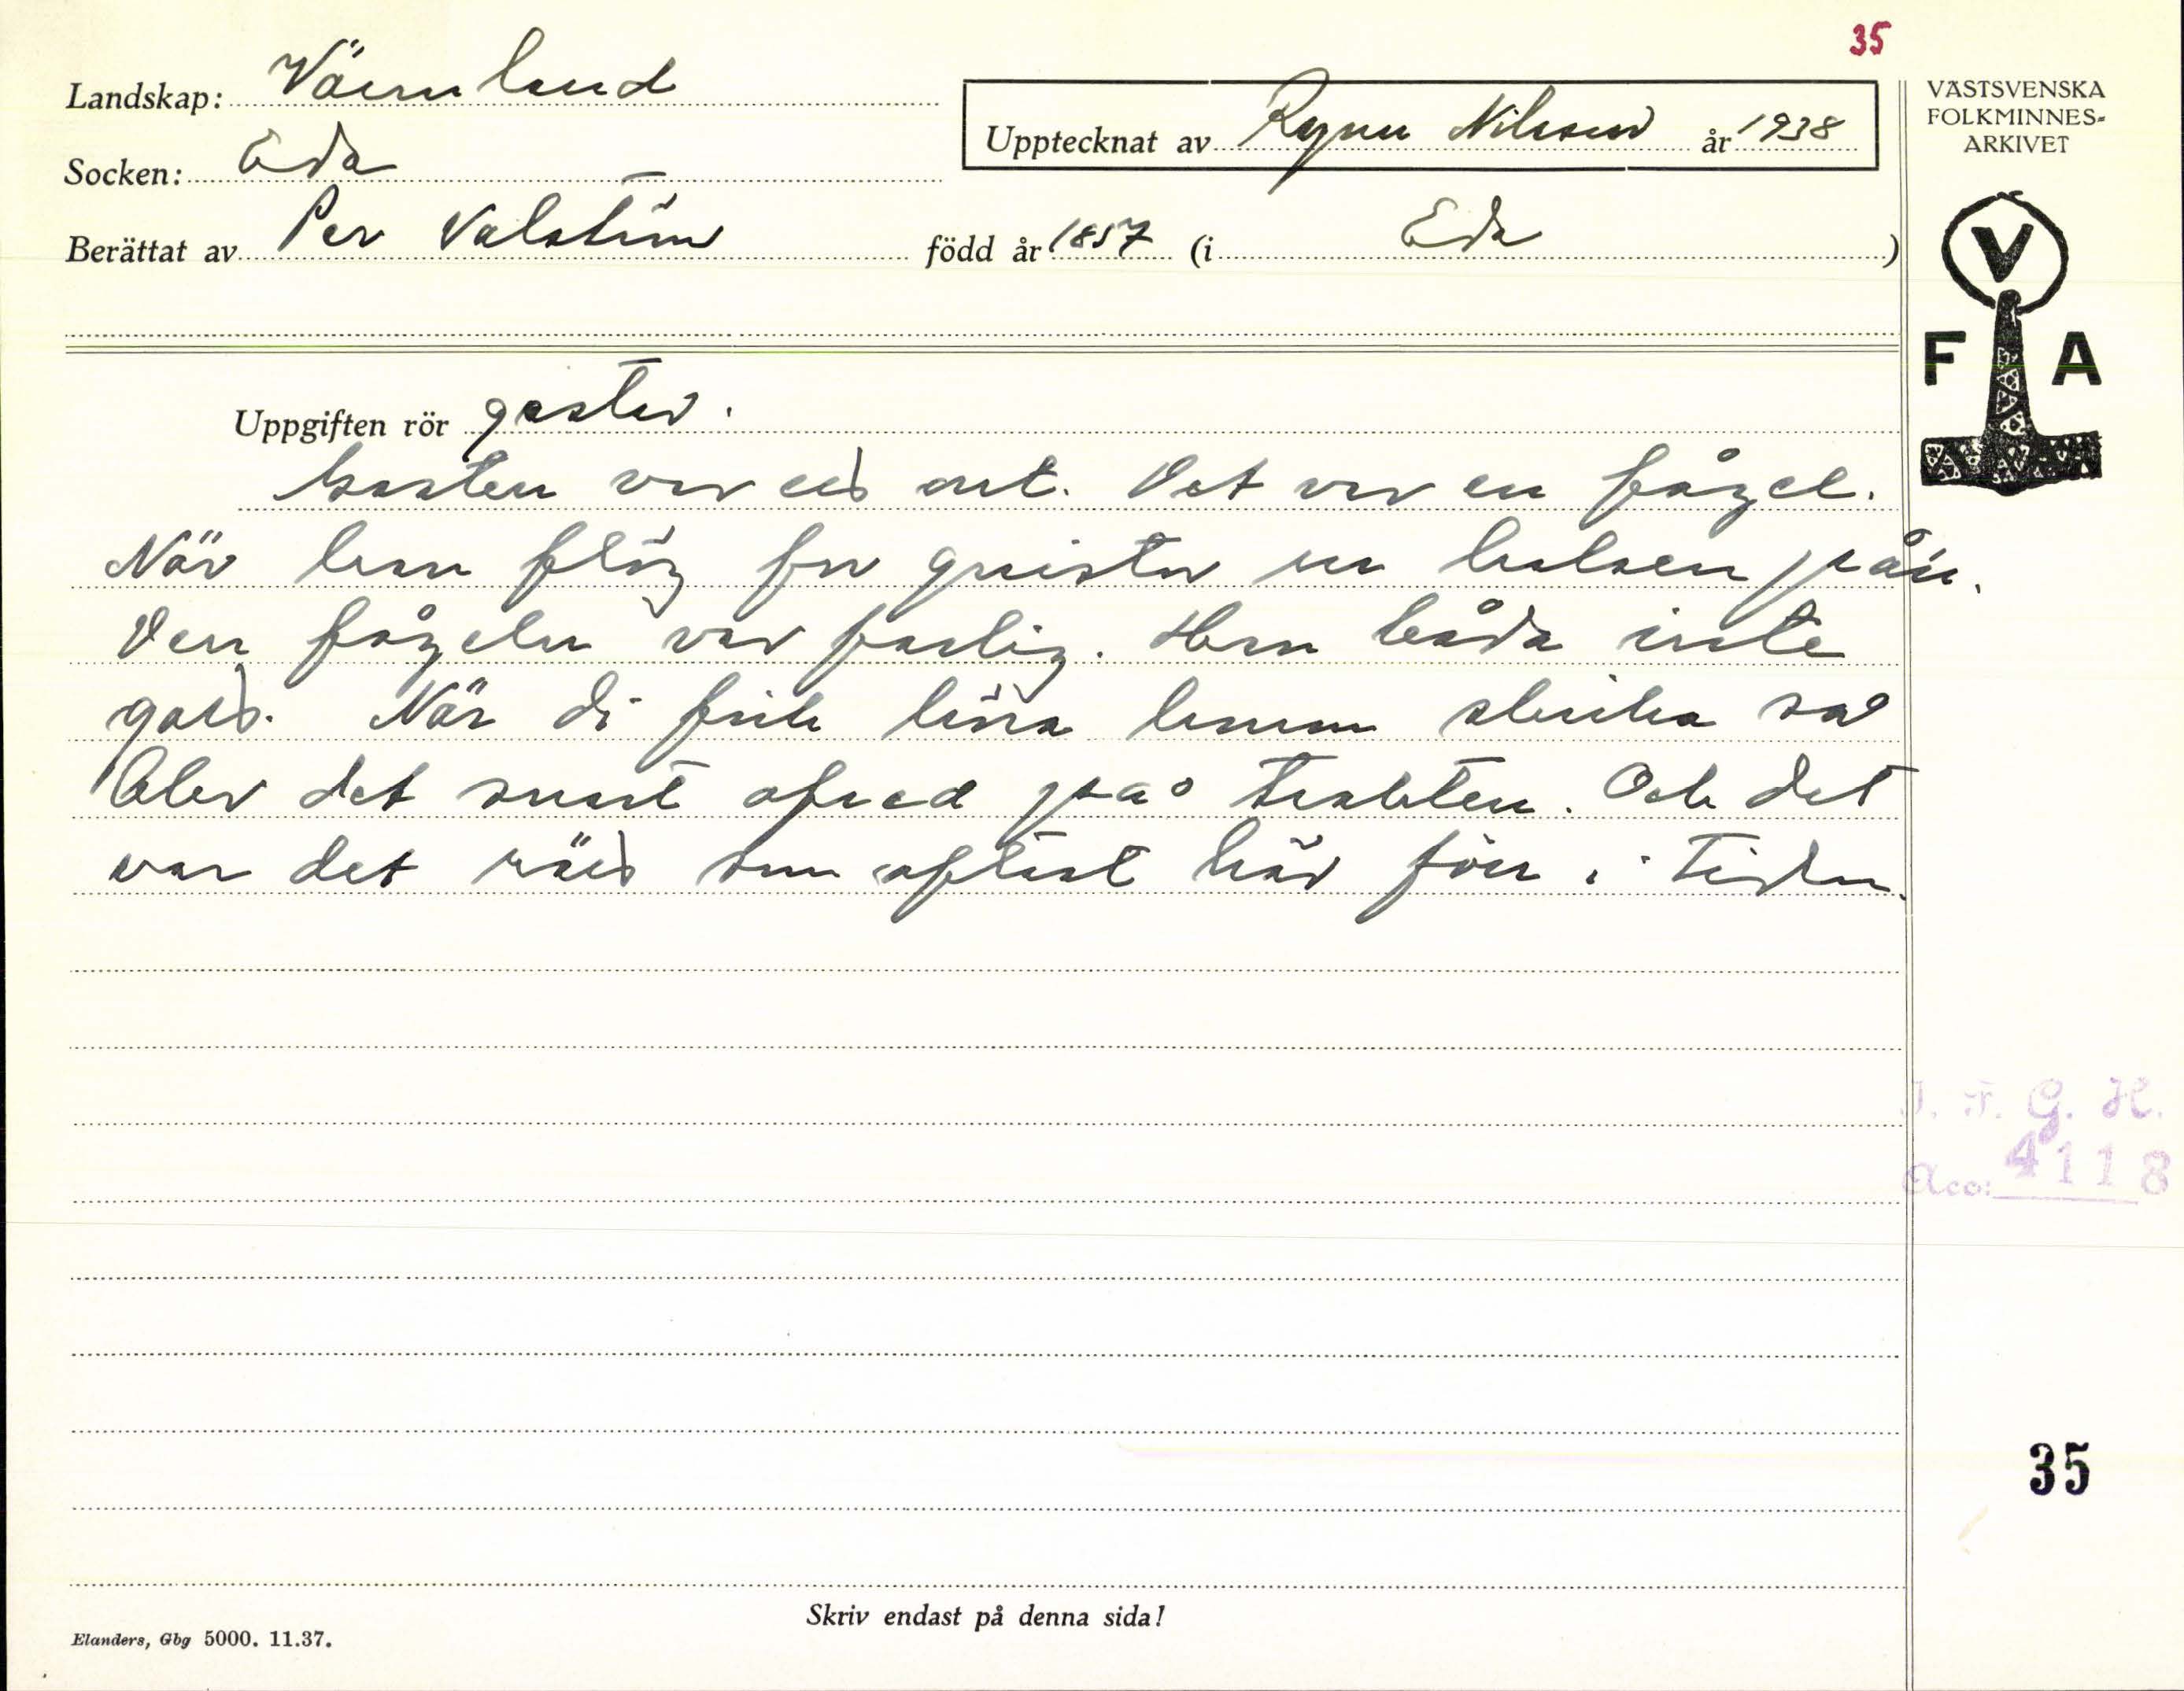 35
Landskap: Värmland
Upptecknat av Ragnar Nilsson år 1938
VÄSTSVENSKA
FOLKMINNES-
ARKIVET
Socken: Eda
Berättat av Per Valström född år 1857 (i Eda )
V
F A
Uppgiften rör gastar.
Gasten var ei art. Det var en fågel.
När han flög for gnistor ur halsen på'n.
Den fågeln var farlig. Han båda inte
gott. När di fick höra honom skrika så
blev det snart ofred på trakten. Och det
var det som oftast här förr i tiden.
I. F. G. H.
Acc: 4118
35
Skriv endast på denna sida!
Elanders, Gbg 5000. 11.37.